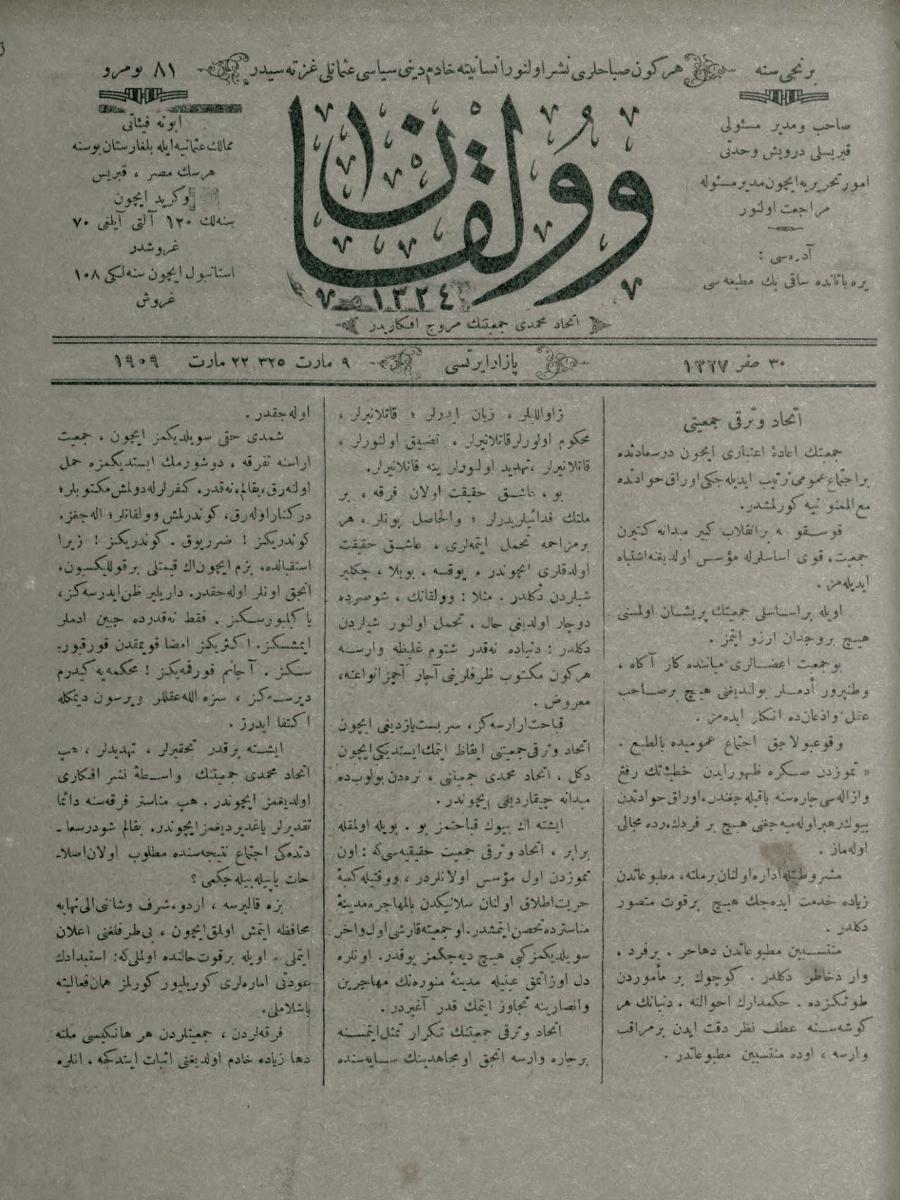 برنجی سنه
هر كون صباحلری نشر اولنور انسانیته خادم دینی سیاسی عثمانلی غزته سیدر
۸۱ نومرو
صاحب ومدیر مسئولی
قبریسلی درویش وحدتی
امور تحریریه ایچون مدیر مسئوله
مراجعت اولنور
آدره سی :
یره باتانده ساقی بك مطبعه سی
وولقان
۱۳۲٤
اتحاد محمدی جمعیتنك مروج افكاریدر
ابونه فیئاتی
ممالك عثمانیه ایله بلغارستان بوسنه
هرسك مصر ، قبریس
وكرید ایچون
سنه لك ۱۲۰ آلتی آیلغی ۷۰
غروشدر
استانبول ایچون سنه لكی ۱۰۸
غروش
۳۰ صفر ۱۳۲۷
پازار ایرتسی
۹ مارت ۳۲۵ ۲۲ مارت ۱۹۰۹
اتحاد وترقی جمعیتی
جمعیتك اعادهٔ اعتباری ایچون درسعادتده
بر اجتماع عمومی ترتیب ایدیله جكی اوراق حوادثده
مع الممنونیه كورلمشدر.
قوسقوه بر انقلاب كبیر میدانه كتیرن
جمعیت، قوی اساسلره مؤسس اولدیغنه اشتباه
ایدیله مز.
اویله بر اساسلی جمعیتك پریشان اولمسنی
هیچ بر وجدان آرزو ایتمز .
بو جمعیت اعضالری میاننده كار آكاه ،
وطنپرور آدملر بولندیغنی هیچ بر صاحب
عقل واذعان ده انكار ایده مز .
وقوعبولاجق اجتماع عمومیده بالطبع .
« تموزدن صكره ظهور ایدن خطیئاتك رفع
وازاله سی چاره سنه باقیله جغندر. اوراق حوادثدن
بیوك رهبر اوله میه جغنی هیچ بر فردك، رده مجالی
اوله ماز .
مشروطیتله اداره اولنان بر ملته، مطبوعاتدن
زیاده خدمت ایده جك هیچ بر قوت متصور
دكلدر .
منتسبین مطبوعاتدن دها حر . بر فرد ،
وارد خاطر دكلدر . كوچوك بر مأموردن
طوتكزده . حكمدارك احوالنه ، دنیانك هر
كوشه سنه عطف نظر دقت ایدن بر مراقب
وارسه ، اوده منتسبین مطبوعاتدر .
زواللیلر ، زیان ایدرلر ؛ قاتلانیرلر ،
محكوم اولورلر قاتلانیرلر . تضییق اولنورلر ،
قاتلانیرلر ، تهدید اولنورلر ینه قاتلانیرلر.
بو ، عاشق حقیقت اولان فرقه ، بر
ملتك فدائیلریدرلر ؛ والحاصل بونلر ، هر
بر مزاحمه تحمل ایتمه لری ، عاشق حقیقت
اولدقلری ایچوندر . یوقسه ، بویلا ، چكلیر
شیلردن دكلدر . مثلا : وولقانك ، شو صره ده
دوچار اولدیغی حال ، تحمل اولنور شیلردن
دكلدر : دنیاده نه قدر شتوم غلیظه وارسه
هر كون مكتوب ظرفلرینی آچار آچمز انواعنه،
معروض .
قباحت آرارسه كز ، سربست یازدیغی ایچون
اتحاد وترقی جمعیتنی ایقاظ ایتمك ایستدیكی ایچون
دكل ، اتحاد محمدی جمعیتنی ، نره دن بولوب ده
میدانه چیقاردیغی ایچوندر .
ایشته اك بیوك قباحتمز بو . بویله اولمقله
برابر . اتحاد وترقی جمعیت حقیقیه سی كه : اون
تموزدن اول مؤسس اولانلردر ، ووقتیله كعبهٔ
حریت اطلاق اولنان سلانیكدن بالمهاجره مدینهٔ
مناسترده تحصن ایتمشدر . او جمعیته قارشی اول وآخر
سویلدیكمز كبی هیچ دیه جكمز یوقدر. اونلره
دل اوزاتمق عینیله مدینهٔ منوره نك مهاجرین
وانصارینه تجاوز ایتمك قدر آغیردر .
اتحاد وترقی جمعیتنك تكرار تمثل ایتمسنه
بر چاره وارسه انجق او مجاهدینك سایه سنده
اوله جقدر .
شمدی حقی سویلدیكمز ایچون ، جمعیت
اراسنه تفرقه ، دوشورمك ایستدیكمزه حمل
اولنه رق، بقالم، نه قدر. كفرلرله دولمش مكتوبلر؛
در كنار اوله رق، كوندرلمش وولقانلر؛ اله جغز.
كوندریكز ! ضرر یوق . كوندریكز ! زیرا
استقبالده، بزم ایچون اك قیمتلی بر قوللكسیون،
انجق اونلر اوله جقدر. داریلیر ظن ایدرسه كز،
یاكیلیورسكز . فقط نه قدرده جبین ادملر
ایمشسكز. اكثریكز امضا قویمقدن قورقیور.
سكز . آجانم قورقمه یكز ! محكمه یه كیدرم
دیرسه كز ، سزه الله عقللر ویرسون دیمكله
اكتفا ایدرز .
ایشته بو قدر تحقیرلر ، تهدیدلر ، هپ
اتحاد محمدی جمعیتنك واسطهٔ نشر افكاری
اولدیغمز ایچوندر . هپ مناستر فرقه سنه دائما
تقدیرلر یاغدیردیغمز ایچوندر. بقالم شو درسعا-
دتده كی اجتماع نتیجه سنده مطلوب اولان اصلا-
حات یاپیله بیله جكمی ؟
بزه قالیرسه ، اردو ، شرف وشاننی الی نهایه
محافظه ایتمش اولمق ایچون ، بی طرفلغنی اعلان
ایتملی . اویله بر قوت حالنده اولملی كه: استبدادك
عودتی اماره لری كوریلیور كورلمز همان فعالیته
باشلاملی.
فرقه لردن ، جمعیتلردن هر هانكیسی ملته
دها زیاده خادم اولدیغنی اثبات ایتدكجه . انلره